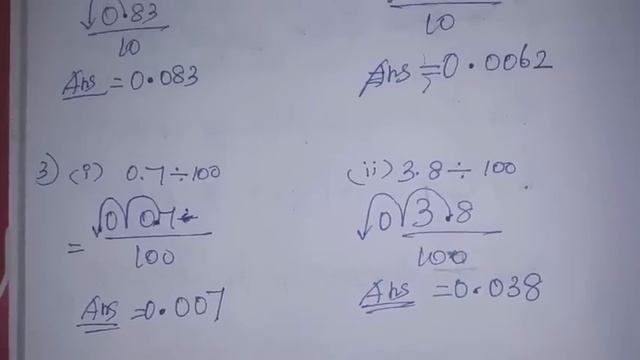 0.83
10
10
Ans = 0.083
Ans = 0.0062
3) (i) 0.7 ÷ 100
(ii) 3.8 ÷ 100
= 0 0.7
100
0 3.8
100
Ans = 0.007
Ans = 0.038